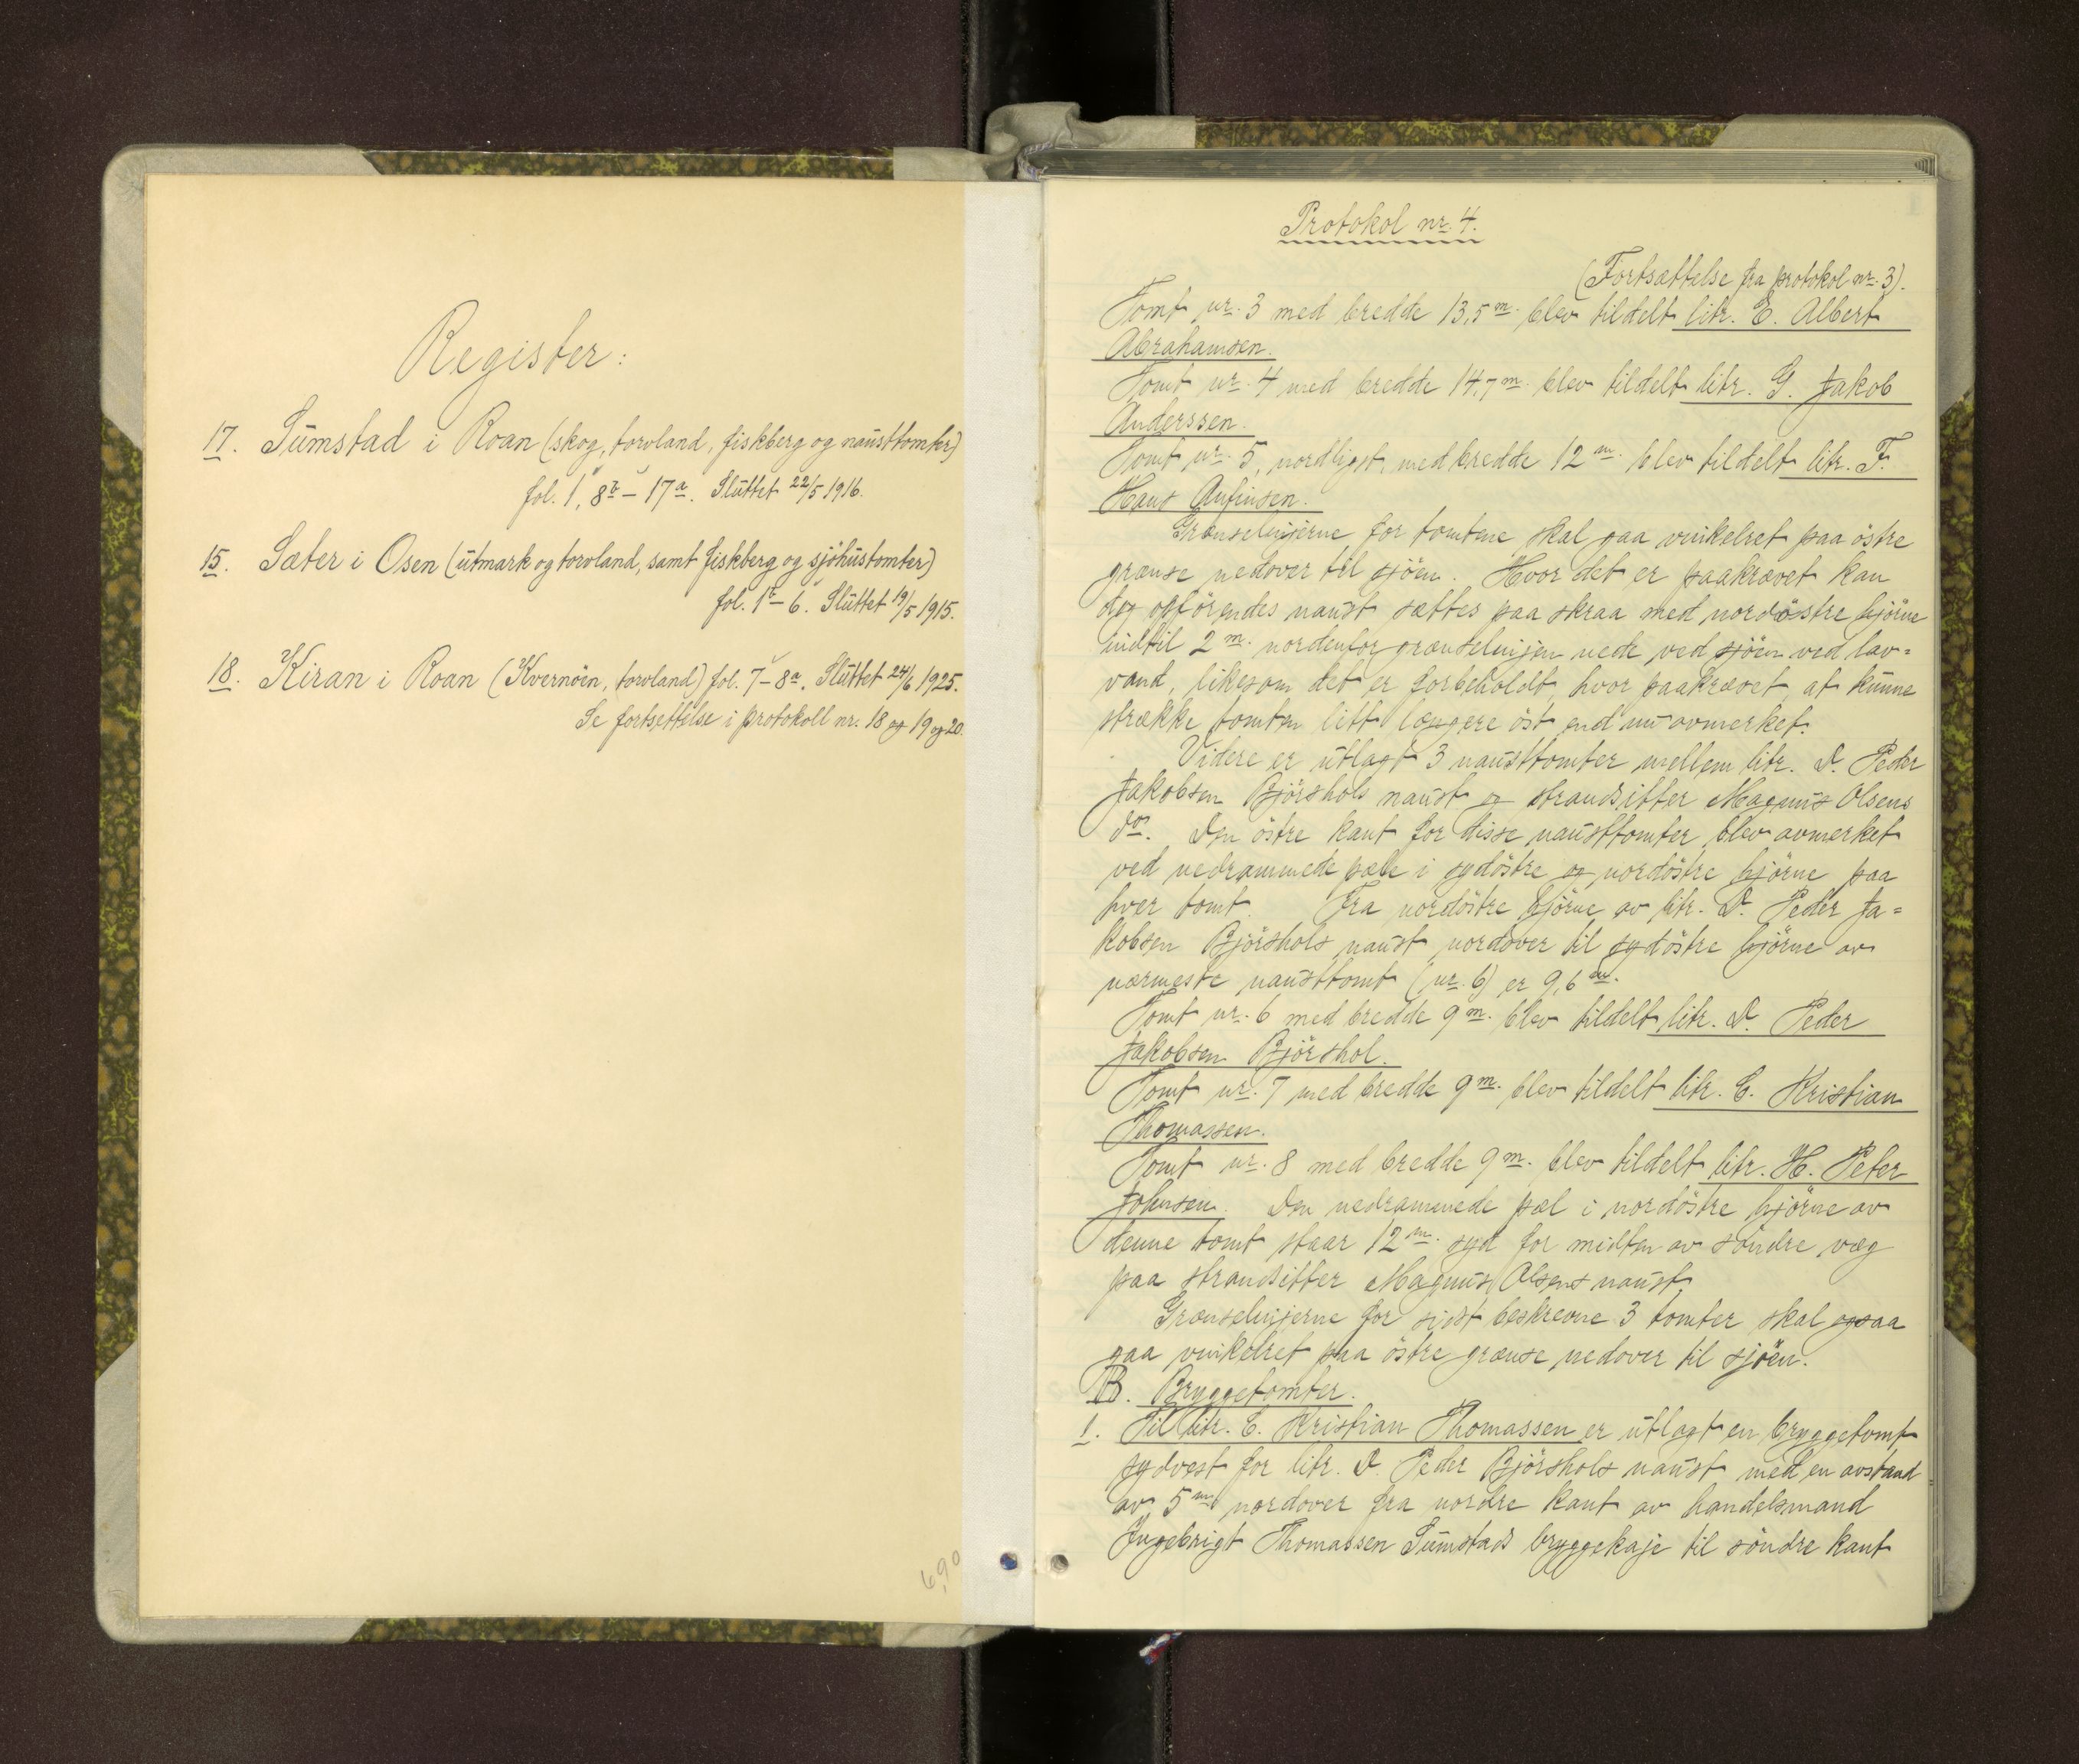 Register:
17. Sumstad i Roan (skog, torvland, fiskberg og nausttomter)
fol. 1, 8b – 17a. Sluttet 22/5 1916.
15. Sæter i Osen (utmark og torvland, samt fiskberg og sjöhustomter)
fol. 1b – 6. Sluttet 19/5 1915.
18. Kiran i Roan (Kvernöen, torvland) fol. 7 – 8a. Sluttet 24/6 1925.
Se fortsettelse i protokoll nr. 18 og 19 og 20.
6,90
Protokol nr. 4.
(Fortsættelse fra protokol nr. 3).
Tomt nr. 3 med bredde 13,5 m. blev tildelt litr. E. Albert
Abrahamsen.
Tomt nr. 4 med bredde 14,7 m. blev tildelt litr. G. Jakob
Anderssen.
Tomt nr. 5, nordligst, med bredde 12 m. blev tildelt litr. F.
Hans Anfinsen.
Grænselinjerne for tomtene skal gaa vinkelret paa östre
grænse nedover til sjöen. Hvor det er paakrævet kan
de opförendes naust sættes paa skraa med nordöstre hjörne
indtil 2 m. nordenfor grænselinjen nede ved sjöen ved lav=
vand, likesom det er forbeholdt, hvor paakrævet, at kunne
strække tomten litt længere öst end nu avmerket.
Videre er utlagt 3 nausttomter mellem litr. D. Peder
Jakobsen Björshols naust og strandsitter Magnus Olsens
do. Den östre kant for disse nausttomter blev avmerket
ved nedrammede pæle i sydöstre og nordöstre hjörne paa
hver tomt. Fra nordöstre hjörne av litr. D. Peder Ja=
kobsen Björshols naust nordover til sydöstre hjörne av
nærmeste nausttomt (nr. 6) er 9,6 m.
Tomt nr. 6 med bredde 9 m. blev tildelt litr. D. Peder
Jakobsen Björshol.
Tomt nr. 7 med bredde 9 m. blev tildelt litr. C. Kristian
Thomassen.
Tomt nr. 8 med bredde 9 m. blev tildelt litr. H. Peter
Johnsen. Den nedrammede pæl i nordöstre hjörne av
denne tomt staar 12 m. syd for midten av söndre væg
paa strandsitter Magnus Olsens naust.
Grænselinjerne for sidst beskrevne 3 tomter skal ogsaa
gaa vinkelret paa östre grænse nedover til sjöen.
B. Bryggetomter.
1. Til litr. C. Kristian Thomassen er utlagt en bryggetomt
sydvest for litr. D. Peder Björshols naust med en avstand
av 5 m. nordover fra nordre kant av handelsmand
Ingebrigt Thomassen Sumstads bryggekaje til söndre kant